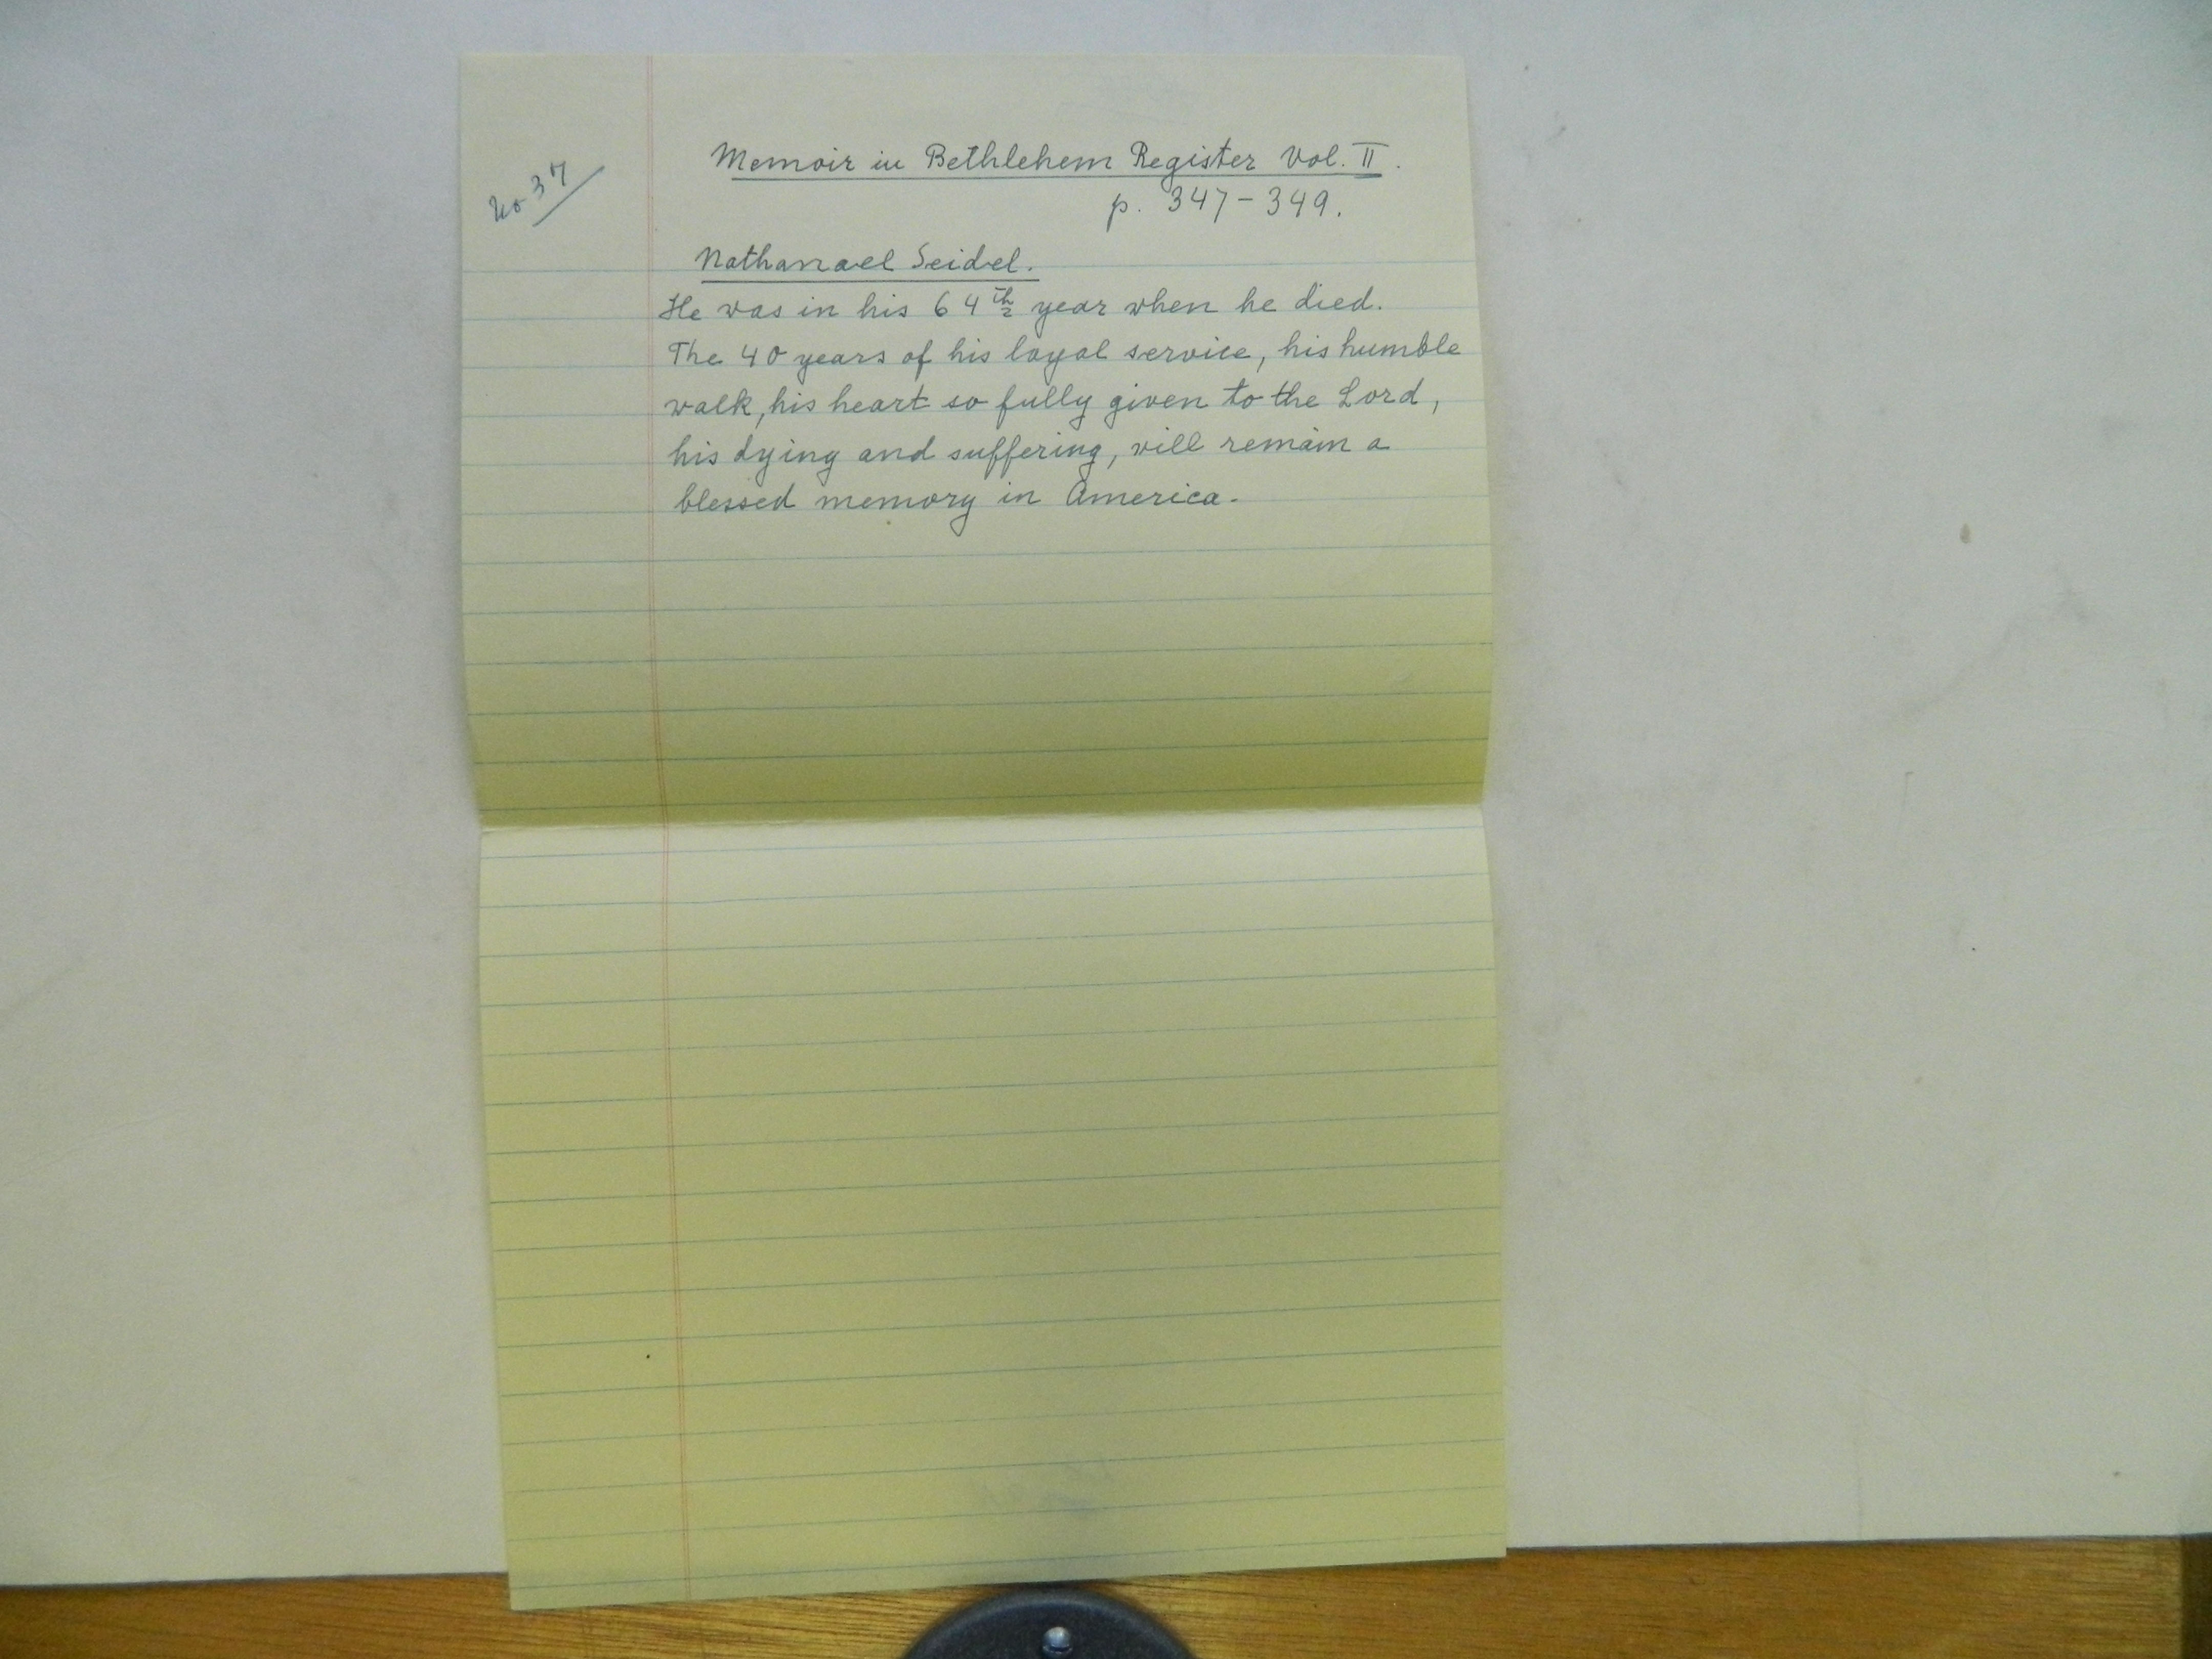 No 37
Memoir in Bethlehem Register Vol. II.
p. 347-349.
Nathanael Seidel.
He was in his 64th year when he died.
The 40 years of his loyal service, his humble
walk, his heart so fully given to the Lord,
his dying and suffering, will remain a
blessed memory in America.